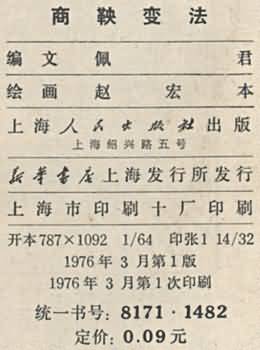 商鞅变法
编文佩君
绘画赵宏本
上海人民出版社出版
上海绍兴路五号
新华书店上海发行所发行
上海市印刷十厂印刷
开本787×1092 1/64 印张1 14/32
1976年3月第1版
1976年3月第1次印刷
统一书号：8171·1482
定价：0.09元